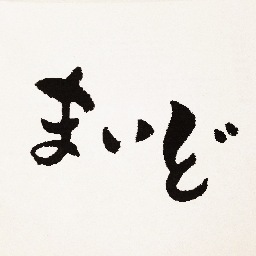 まいど